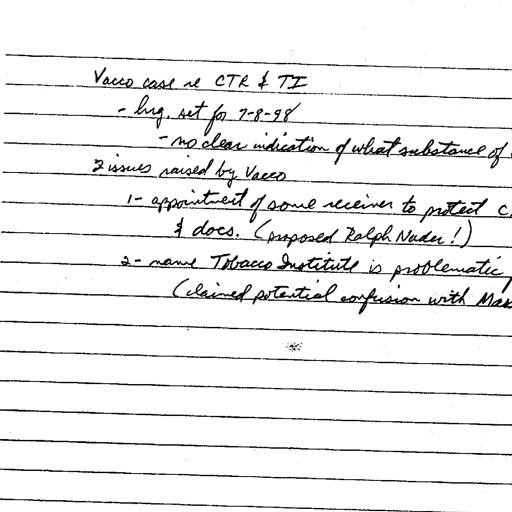 Vacco case re CTR & TI
- hrg. set for 7-8-98
- no clear indication of what substance of
2 issues raised by Vacco
1- appointment of some receiver to protect C
& docs. (proposed Ralph Nader!)
2- name Tobacco Institute is problematic,
(claimed potential confusion with Max